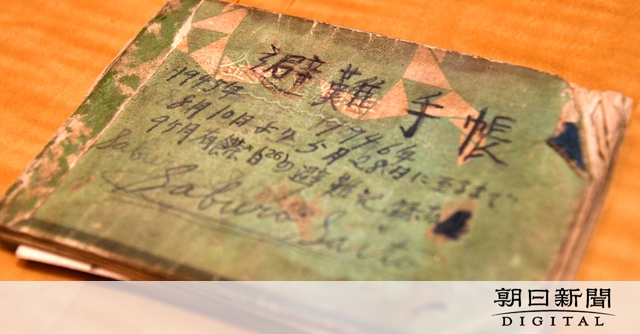 避難手帳
1945年 1946年
8月10日より5月28日に至るまで
避難記録
Saburo Saito
朝日新聞
DIGITAL